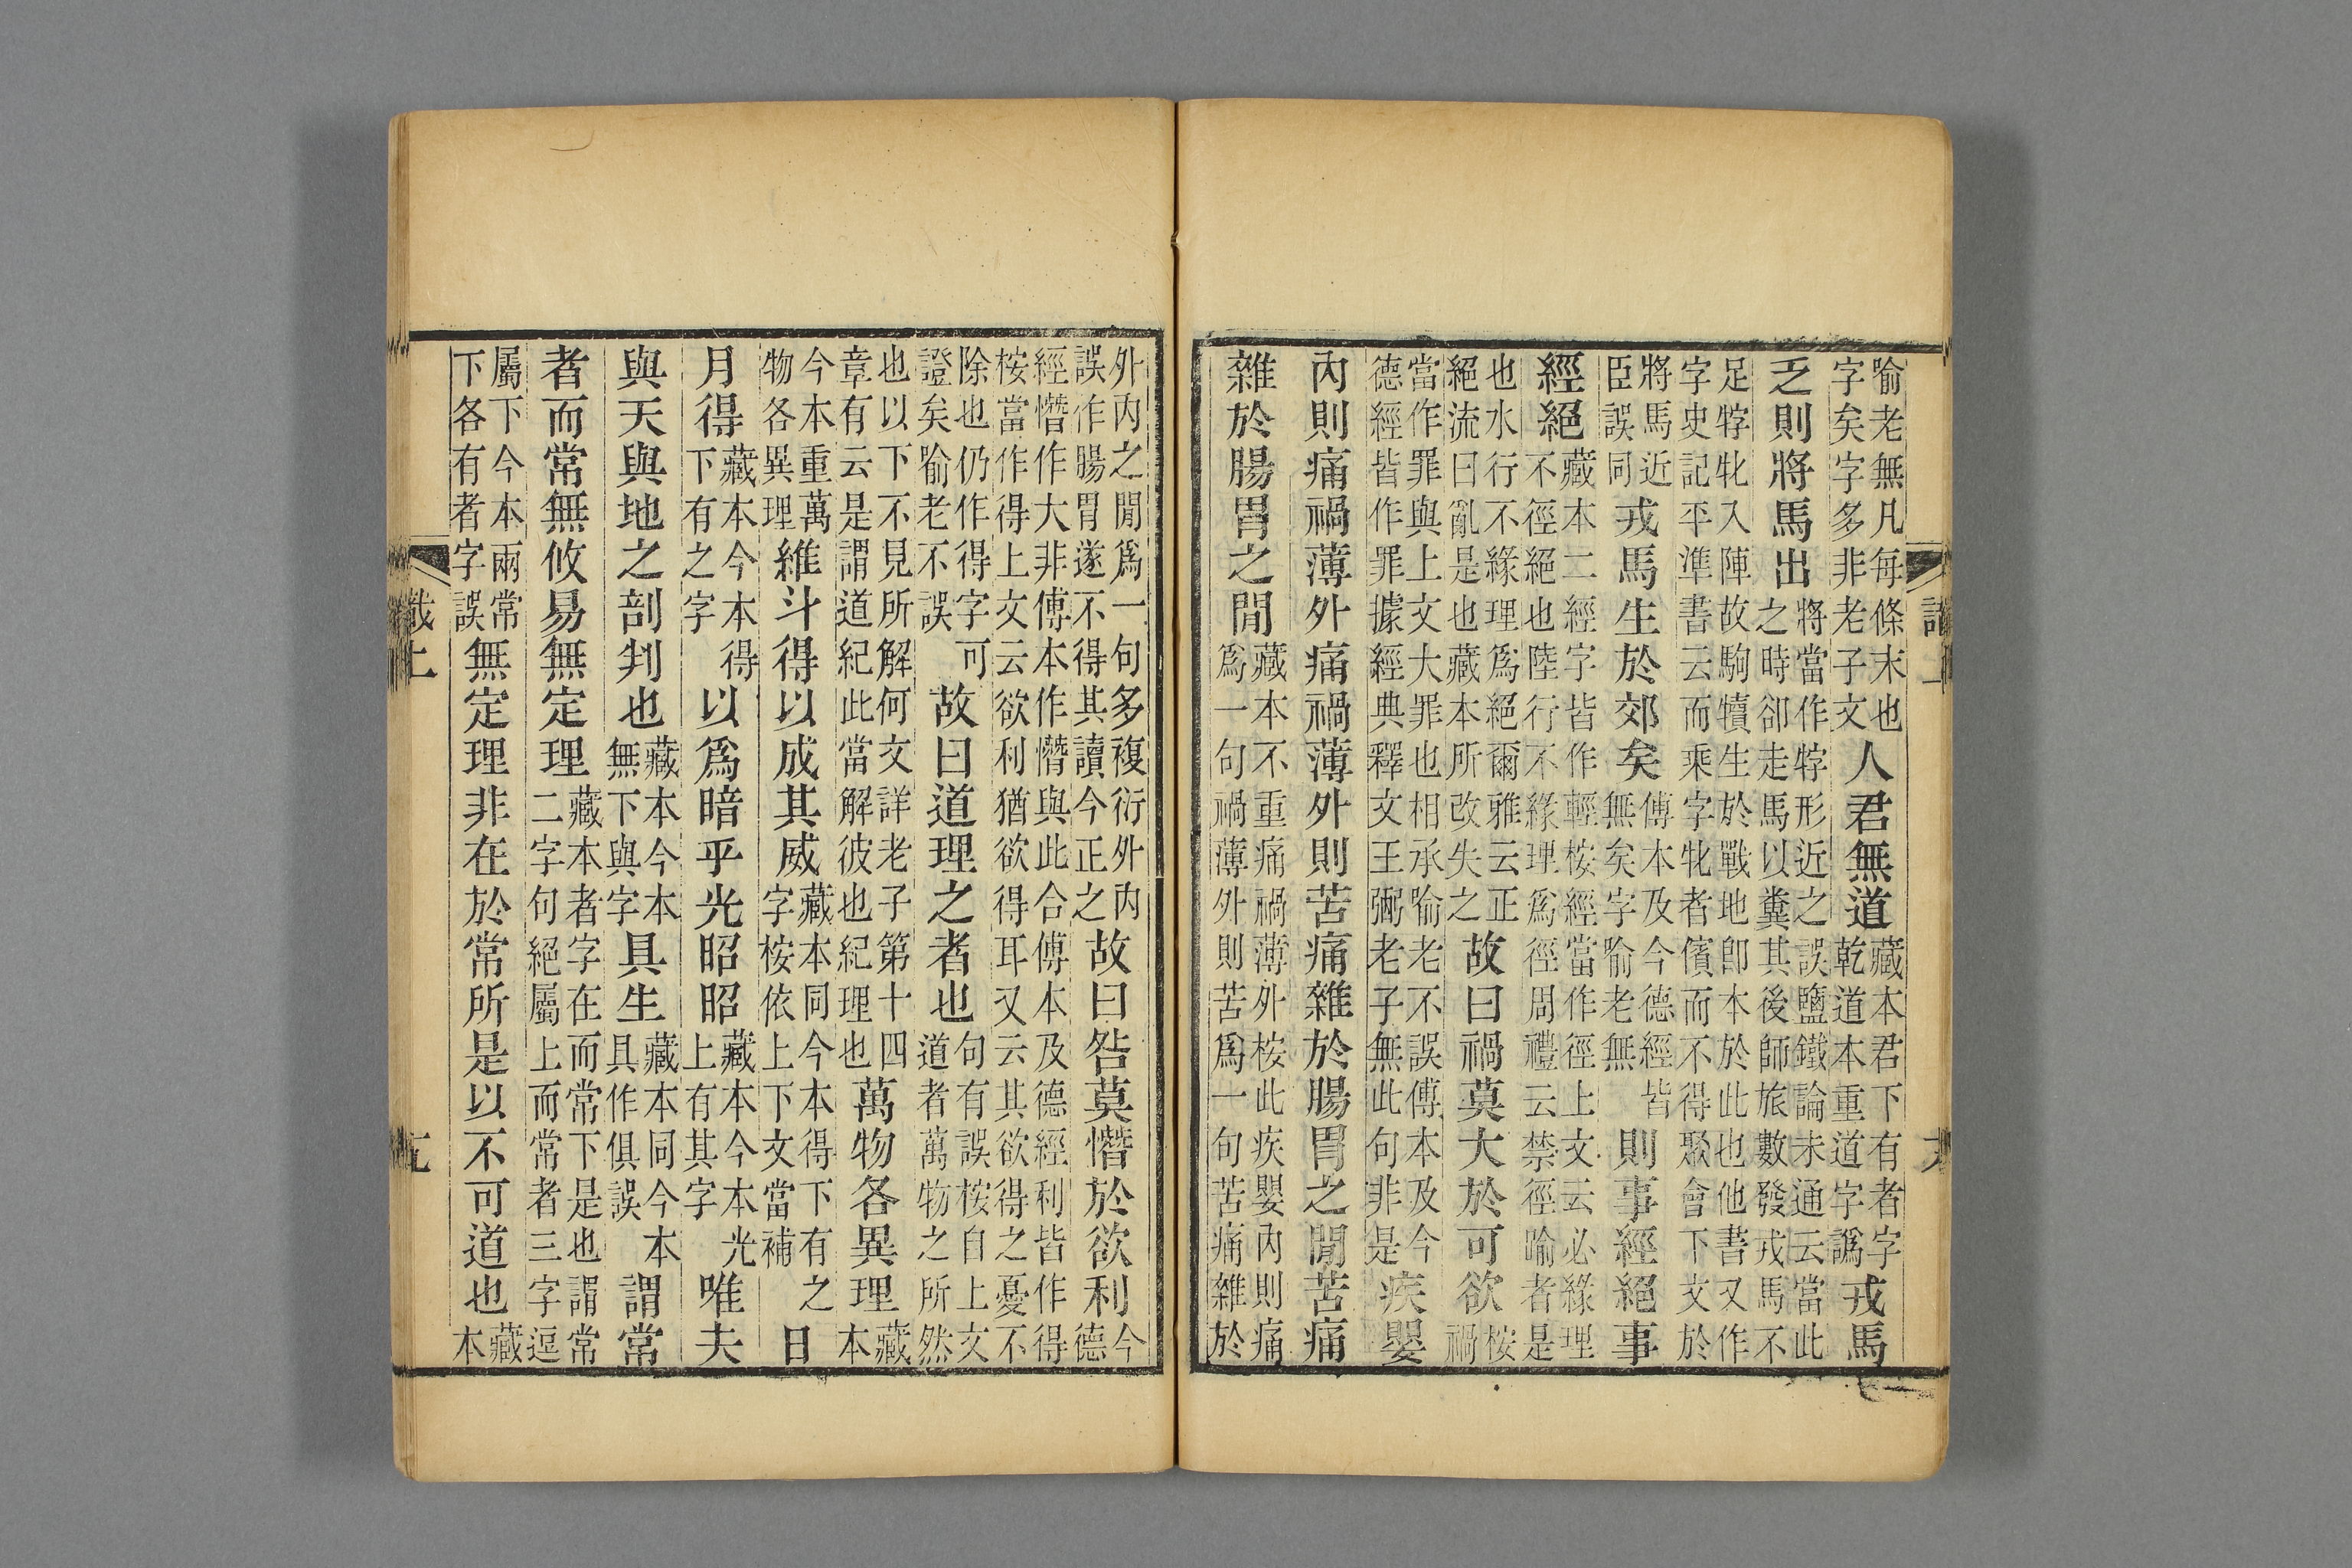 喻老無凡每條末也字矣字多非老子文人君無道藏本君下有者字乾道本重道字譌戎馬
乏則將馬出將當作牸形近之誤鹽鐵論未通云當此之時卻走馬以糞其後師旅數發戎馬不
足牸牝入陣故駒犢生於戰地卽本於此也他書又作字史記平準書云而乘字牝者儐而不得聚會下文於
將馬近臣誤同戎馬生於郊矣傅本及今德經皆無矣字喻老無則事經絕事
經絕藏本二經字皆作輕桉經當作徑上文云必緣理不徑絕也陸行不緣理爲徑周禮云禁徑喻者是
也水行不緣理爲絕爾雅云正絕流曰亂是也藏本所改失之故曰禍莫大於可欲桉禍
當作罪與上文大罪也相承喻老不誤傅本及今德經皆作罪據經典釋文王弼老子無此句非是疾嬰
內則痛禍薄外痛禍薄外則苦痛雜於腸胃之閒苦痛
雜於腸胃之閒藏本不重痛禍薄外桉此疾嬰內則痛爲一句禍薄外則苦爲一句苦痛雜於
外內之閒爲一句多複衍外內誤作腸胃遂不得其讀今正之故曰咎莫憯於欲利今德
經憯作大非傅本作憯與此合傅本及德經利皆作得桉當作得上文云欲利猶欲得耳又云其欲得之憂不
除也仍作得字可證矣喻老不誤故曰道理之者也句有誤桉自上文道者萬物之所然
也以下不見所解何文詳老子第十四章有云是謂道紀此當解彼也紀理也萬物各異理藏本
今本重萬物各異理維斗得以成其威藏本同今本得下有之字桉依上下文當補日
月得藏本今本得下有之字以爲暗乎光昭昭藏本今本光上有其字唯夫
與天與地之剖判也藏本今本無下與字具生藏本同今本具作俱誤謂常
者而常無攸易無定理藏本者字在而常下是也謂常二字句絕屬上而常者三字逗
屬下今本兩常下各有者字誤無定理非在於常所是以不可道也藏本